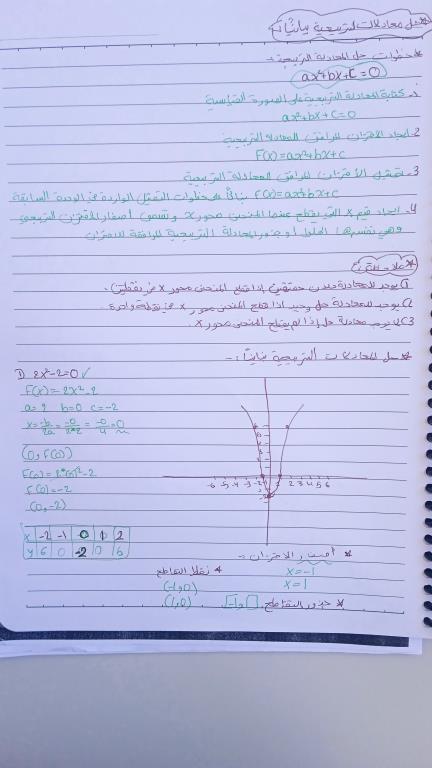 * حل معادلات التربيعية بيانياً
* خطوات حل المعادلة التربيعية :-
ax²+bx+c=0
1. كتابة المعادلة التربيعية على الصورة القياسية
ax²+bx+c=0
2. ايجاد الاقتران المرافق للمعادلة التربيعية
F(x)=ax²+bx+c
3. تمثيل الاقتران المرافق للمعادلة التربيعية
F(x)=ax²+bx+c بيانياً خطوات التمثيل الواردة في الوحدة السابقة
4. ايجاد قيم x التي يقطع عندها المنحنى محور x وتسمى أصفار الاقتران التربيعي
وهي نفسها الحلول أو جذور المعادلة التربيعية المرافقة للاقتران
1) يوجد للمعادلة حلان حقيقيان إذا قطع المنحنى محور x في نقطتين.
2) يوجد للمعادلة حل وحيد اذا قطع المنحنى محور x في نقطة واحدة.
3) لا يوجد معادلة حل إذا لم يقطع المنحنى محور x.
* حل المعادلات التربيعية بيانياً :-
1) 2x²-2=0 ✓
F(x)=2x²-2
a=2 b=0 c=-2
x=-b/2a = -0/2*2 = -0/4 = 0
(0, F(0))
F(0)=2*(0)²-2
F(0)=-2
(0,-2)
-6 -5 -4 -3 -2 1 2 3 4 5 6
x -2 -1 0 1 2
y 6 0 -2 0 6
* أصفار الاقتران :-
x=-1
x=1
* نقاط التقاطع
(-1,0)
(1,0)
* جذور التقاطع.